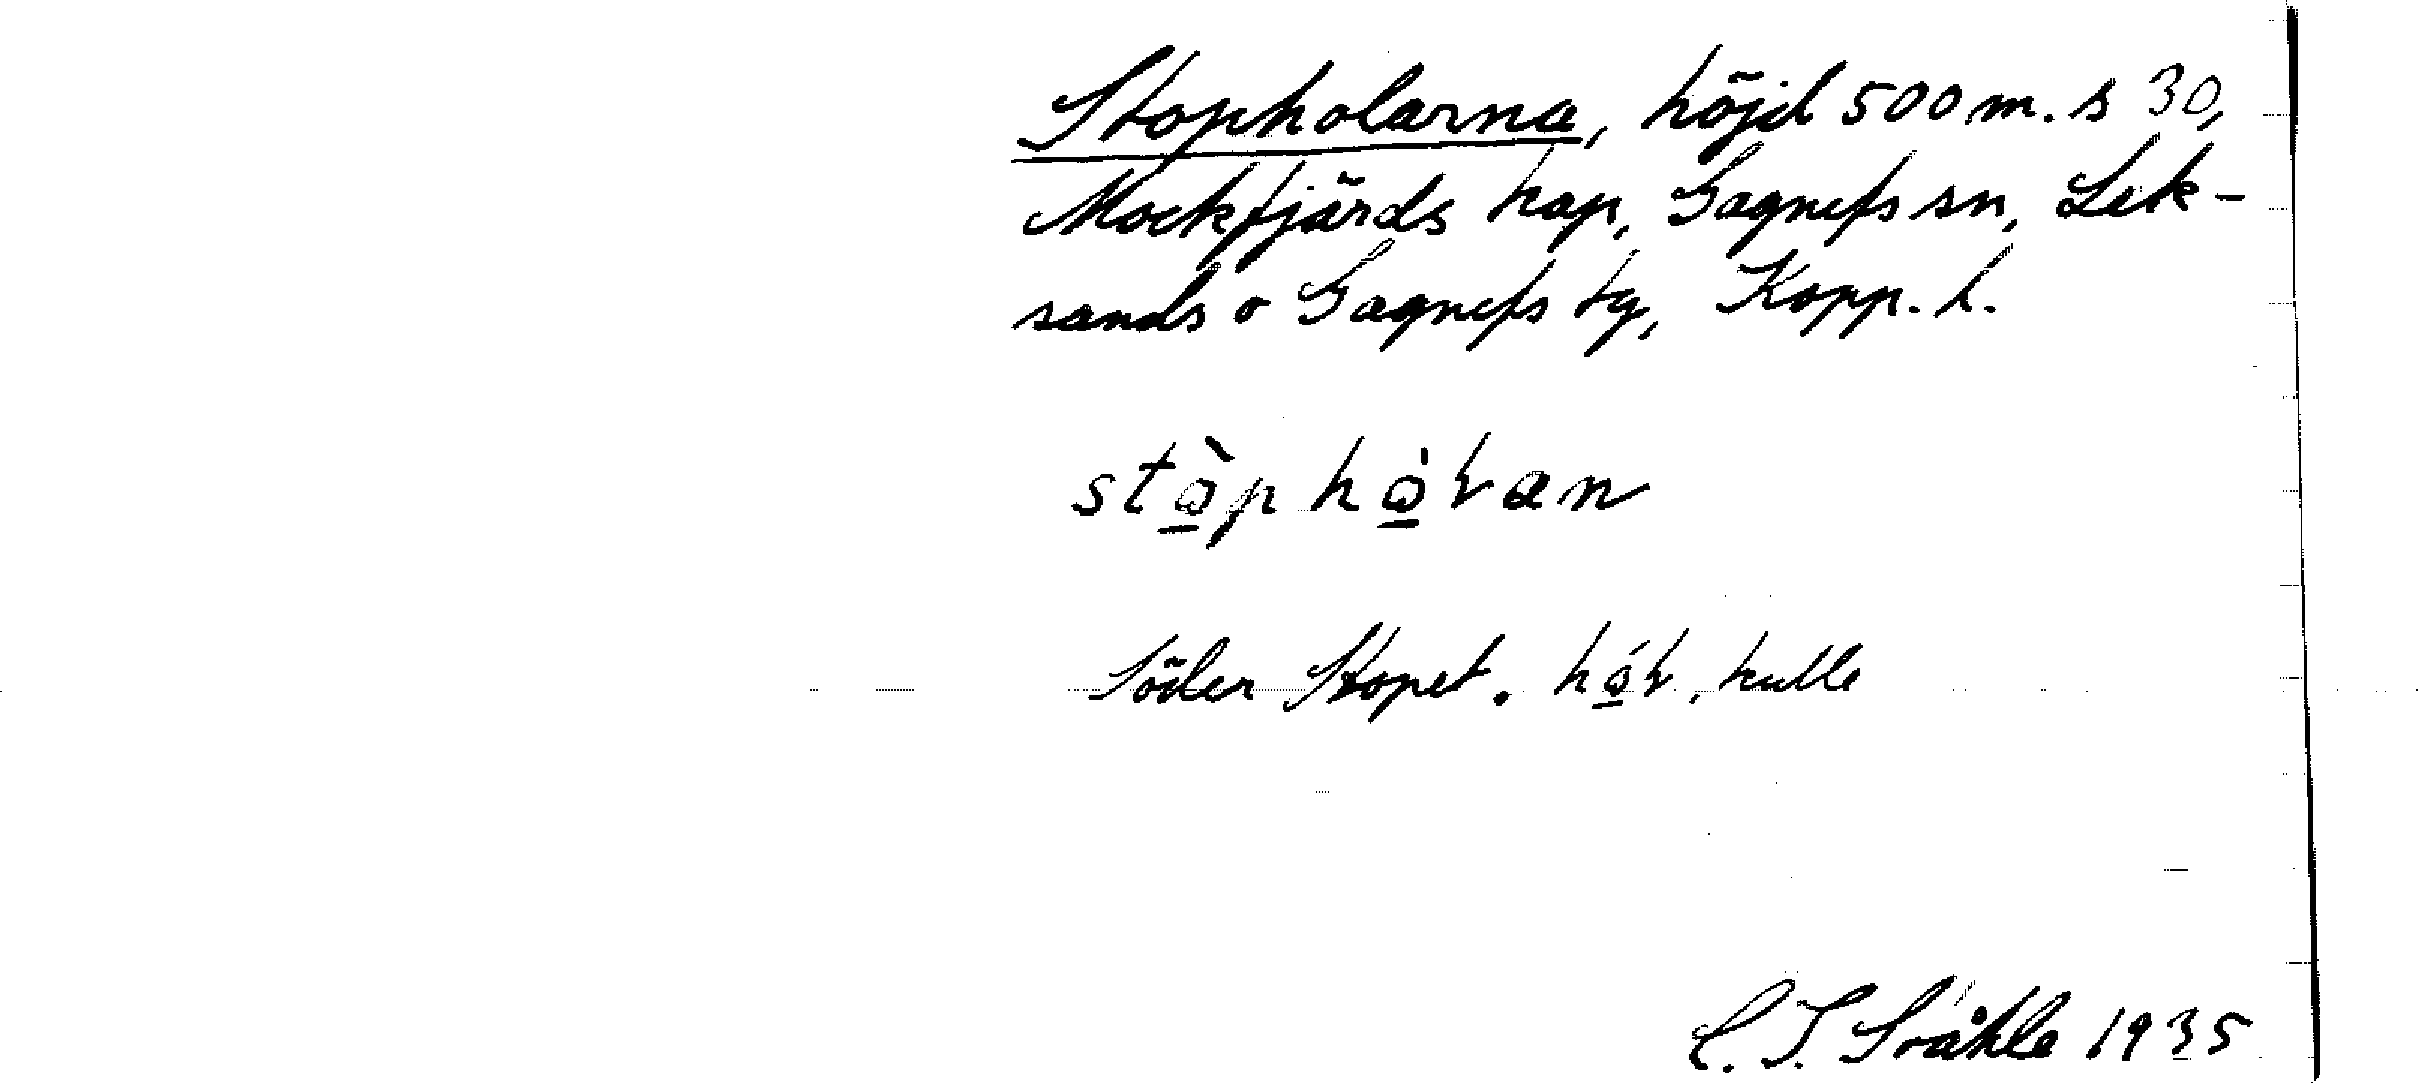 Stopholarna, höjd 500 m. s 30,
Mockfjärds kap, Gagnefs sn, Lek-
sands o Gagnefs tg, Kopp. l.
stò̱p hò̱ɫan
Söder Stopet. hó̱ɫ, kulle
C. I. Ståhle 1935